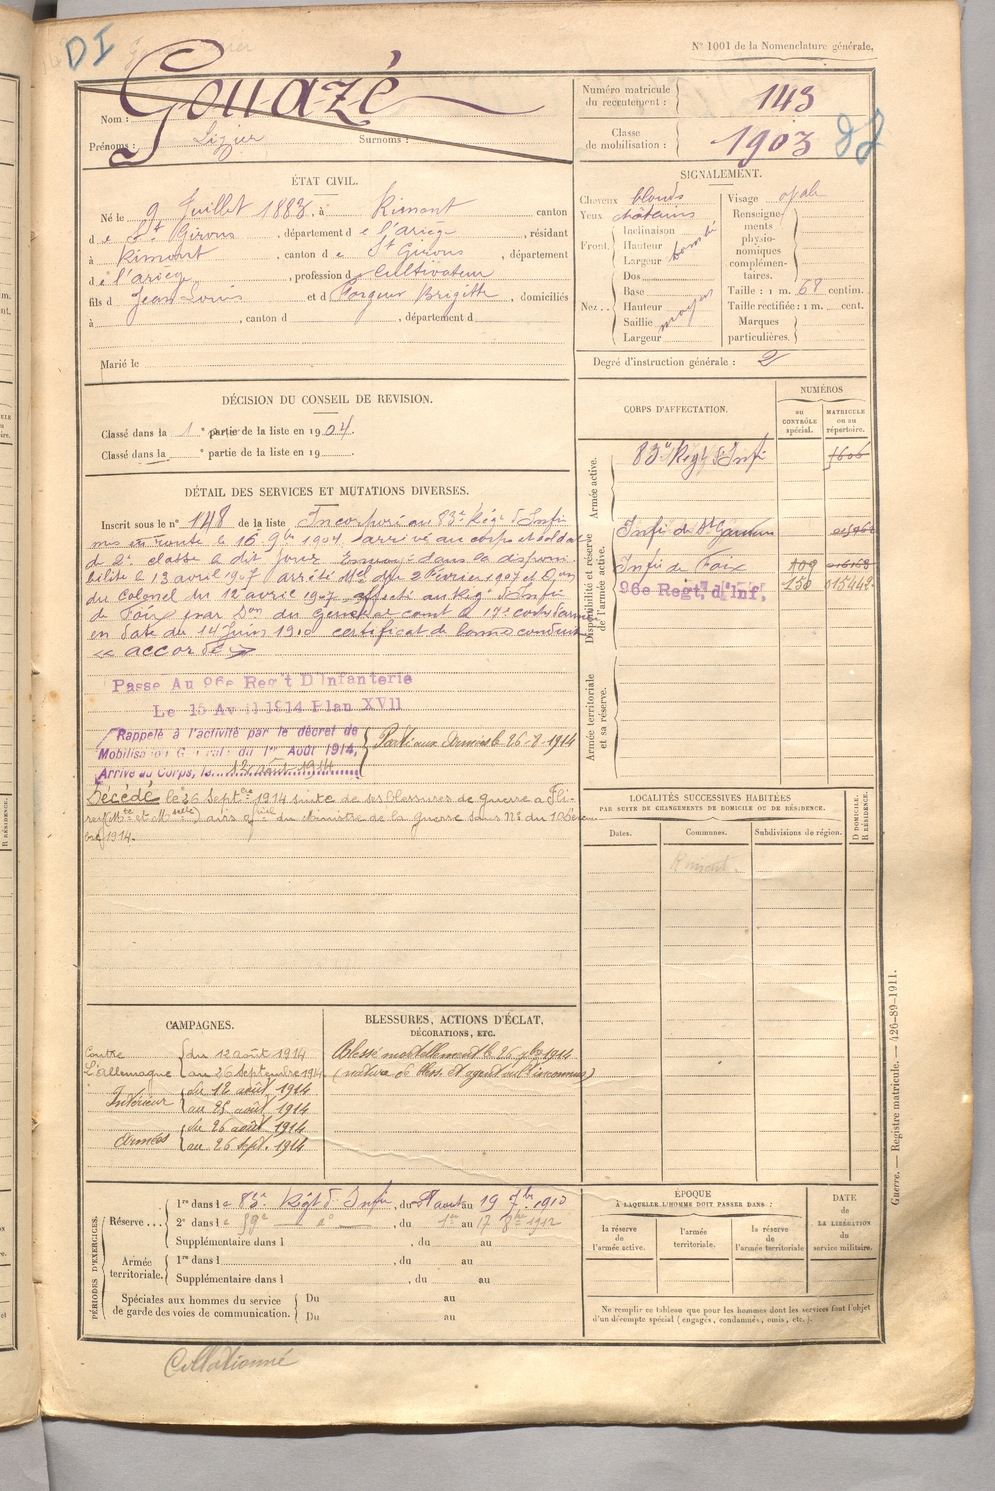 DI
N° 1001 de la Nomenclature générale.
Gouazé
Nom :
Prénoms : Lizier Surnoms :
Numéro matricule du recrutement : 143
Classe de mobilisation : 1903
ÉTAT CIVIL.
Né le 9 Juillet 1883, à Rimont canton
de St Girons, département de l'ariège, résidant
à Rimont, canton de St Girons, département
de l'ariège, profession de Cultivateur
fils d Jean Louis et d Forgeur Brigitte, domiciliés
à , canton d , département d
Marié le
SIGNALEMENT.
Cheveux blonds
Yeux châtains
Front. Inclinaison
Hauteur bombé
Largeur
Nez .. Dos
Base
Hauteur moyen
Saillie
Largeur
Visage ovale
Renseignements physionomiques complémentaires.
Taille : 1 m. 68 centim.
Taille rectifiée : 1 m. cent.
Marques particulières.
Degré d'instruction générale : 2
DÉCISION DU CONSEIL DE REVISION.
Classé dans la 1e partie de la liste en 1904.
Classé dans la e partie de la liste en 19
CORPS D'AFFECTATION.
NUMÉROS
au CONTRÔLE spécial.
MATRICULE ou au répertoire.
Armée active.
83e Regt d'Infie
Disponibilité et réserve de l'armée active.
Infie de St Gaudens
Infie de Foix 109
96e Regt. d'Inf. 150 015442
Armée territoriale et sa réserve.
DÉTAIL DES SERVICES ET MUTATIONS DIVERSES.
Inscrit sous le n° 148 de la liste Incorporé au 83e Rég. d'Infie
mis en route le 16 9bre 1904, arrivé au corps et soldat
de 2e classe le dit jour. Envoyé dans la disponi-
bilité le 13 avril 1907 arrêté Mel du 2 Février 1907 et Don
du Colonel du 12 avril 1907. affecté au Regt d'Infie
de Foix par Don du Général comt le 17e corps d'armée
en date du 14 Juin 1910 certificat de bonne conduite
« accordé »
Passe Au 96e Reg't D'Infanterie
Le 15 Avril 1914 Plan XVII
Rappelé à l'activité par le décret de
Mobilisation Générale du 1er Août 1914,
Arrivé au Corps, le 12 août 1914
Parti aux Armées le 26-8-1914
Décédé le 26 Septbre 1914 suite de ses blessures de guerre à Fli-
rey (Mthe et Mselle) avis officiel du Ministre de la guerre sans N° du 10 décem-
bre 1914.
LOCALITÉS SUCCESSIVES HABITÉES
PAR SUITE DE CHANGEMENTS DE DOMICILE OU DE RÉSIDENCE.
Dates.
Communes.
Subdivisions de région.
D DOMICILE. R RÉSIDENCE.
Rimont.
CAMPAGNES.
Contre L'allemagne du 12 août 1914
au 26 Septembre 1914
Intérieur du 12 août 1914
au 25 août 1914
Armées du 26 août 1914
au 26 Sept. 1914
BLESSURES, ACTIONS D'ÉCLAT,
DÉCORATIONS, ETC.
Blessé mortellement le 26 7bre 1914
(nature de bless. et agent vulnt inconnus)
PÉRIODES D'EXERCICES.
Réserve... 1re dans le 83e Régt d'Infie, du août au 19 7bre 1910
2e dans le 59e , du 1er au 17 8bre 1912
Supplémentaire dans l , du au
Armée territoriale. 1re dans l , du au
Supplémentaire dans l , du au
Spéciales aux hommes du service de garde des voies de communication. Du au
Du au
ÉPOQUE
À LAQUELLE L'HOMME DOIT PASSER DANS :
la réserve de l'armée active.
l'armée territoriale.
la réserve de l'armée territoriale
DATE de LA LIBÉRATION du service militaire.
Ne remplir ce tableau que pour les hommes dont les services font l'objet
d'un décompte spécial (engagés, condamnés, omis, etc.).
Guerre. — Registre matricule. — 426-89-1911.
Collationné